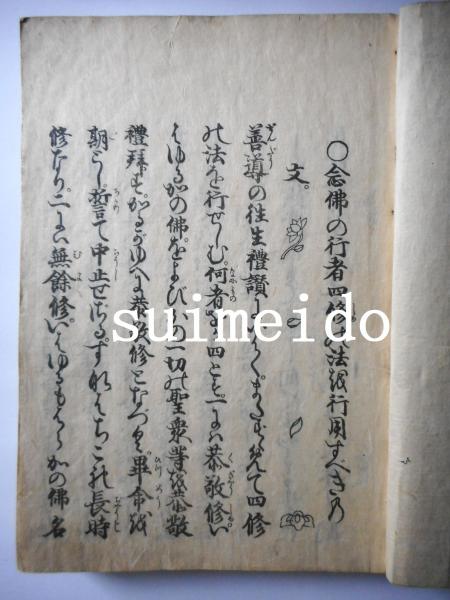 〇念佛の行者四修の法を行用すべきの
文。
善導の往生禮讃にいはく。またすゝめて四修
の法を行ぜしむ。何者をか四とす。一には恭敬修。い
はゆるかの佛。をよびかの一切の聖衆等を恭敬
禮拜す。かるがゆへに恭敬修となづく。畢命を
期とし。誓て中止せざる。すなはちこれ長時
修なり。二には無餘修。いはゆるもはらかの佛名
suimeido